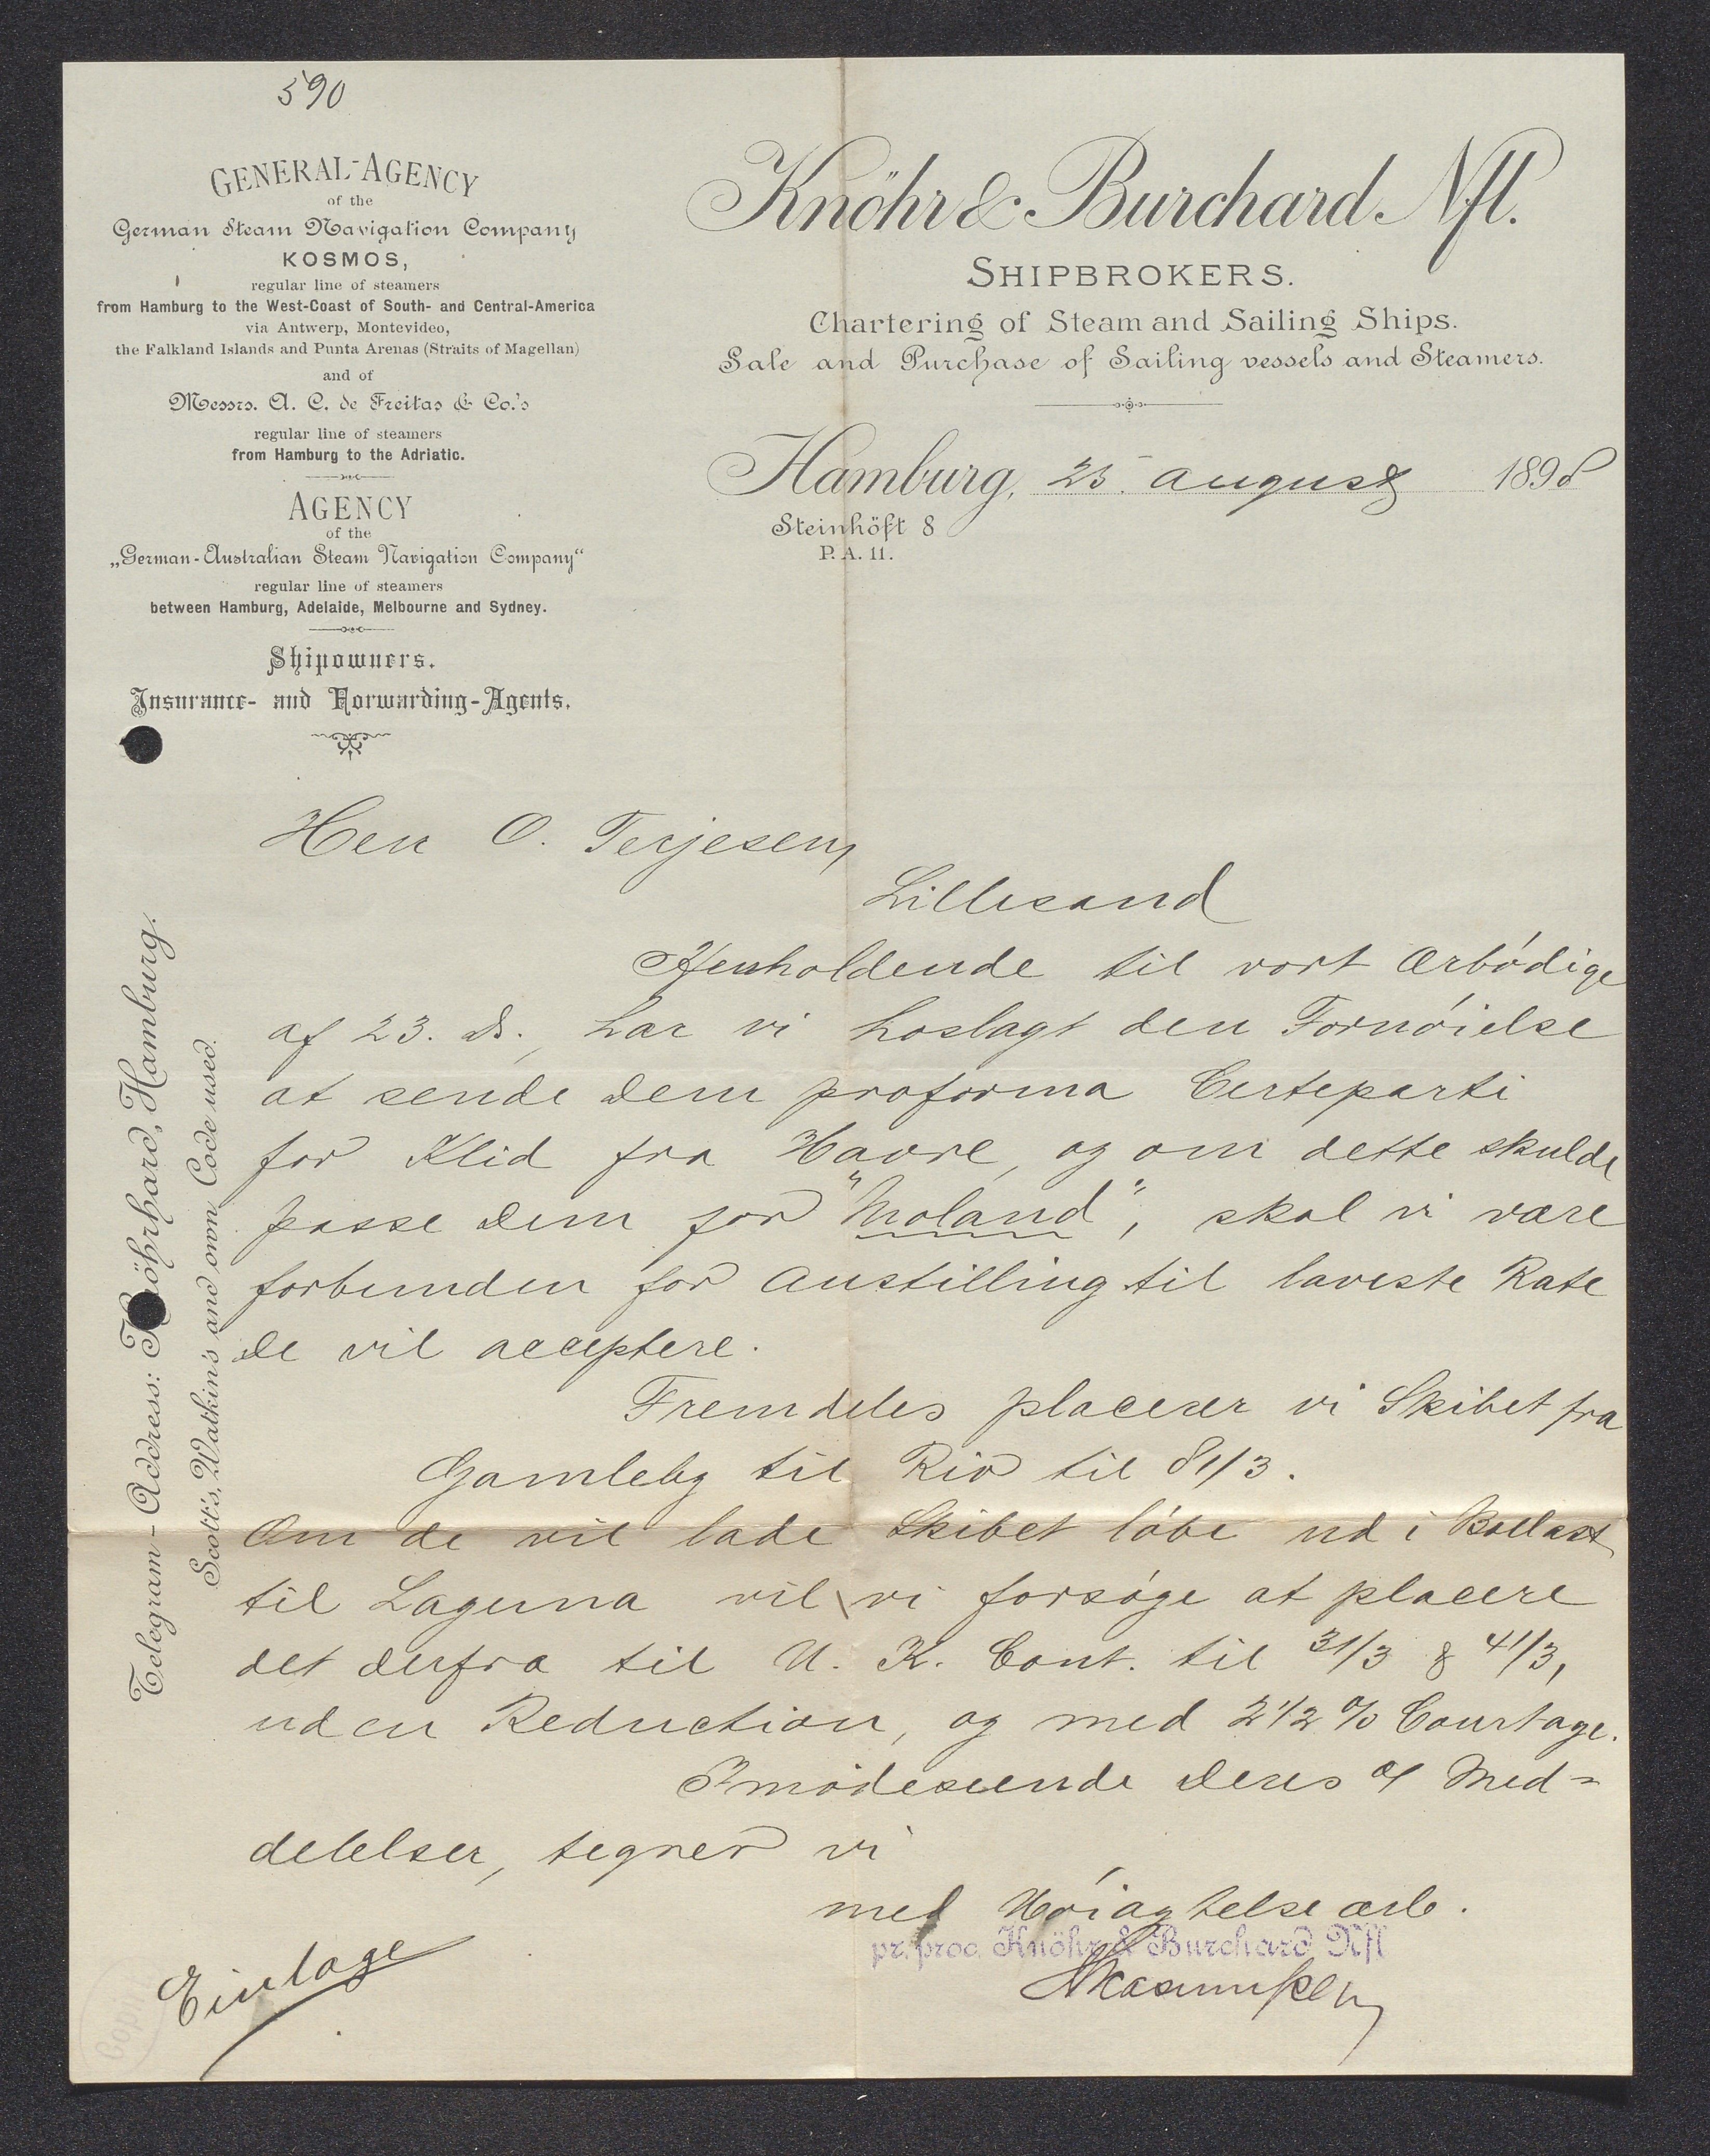 590
GENERAL-AGENCY
of the
German Steam Navigation Company
KOSMOS,
regular line of steamers
from Hamburg to the West-Coast of South- and Central-America
via Antwerp, Montevideo,
the Falkland Islands and Punta Arenas (Straits of Magellan)
and of
Messrs. A. C. de Freitas & Co.'s
regular line of steamers
from Hamburg to the Adriatic.
AGENCY
of the
„German-Australian Steam Navigation Company“
regular line of steamers
between Hamburg, Adelaide, Melbourne and Sydney.
Shipowners.
Insurance- and Forwarding-Agents.
Knöhr & Burchard Nfl.
SHIPBROKERS.
Chartering of Steam and Sailing Ships.
Sale and Purchase of Sailing vessels and Steamers.
Hamburg, 25. august 1898
Steinhöft 8
P. A. 11.
Telegram-Address: Knöhrhard, Hamburg.
Scott's, Watkin's and own Code used.
Herr O. Terjesen,
Lillesand
Henholdende til vort Ærbödige
af 23. ds., har vi hoslagt den Fornöielse
at sende dem proforma Certeparti
for Klid fra Havre, og om dette skulde
passe dem for "Moland", skal vi være
forbunden for Anstilling til laveste Rate
de vil acceptere.
Fremdeles placerer vi Skibet fra
Gamleby til Rio til 81/3.
Om de vil lade Skibet löbe ud i Ballast
til Laguna vil vi forsöge at placere
det derfra til U. K. Cont. til 31/3 & 41/3,
uden Reduction, og med 2 1/2 % Courtage.
Imödeseende deres Med=
delelser, tegner vi
med Höiagtelse ærb.
pr. proc. Knöhr & Burchard Nfl
Einlage
Copi